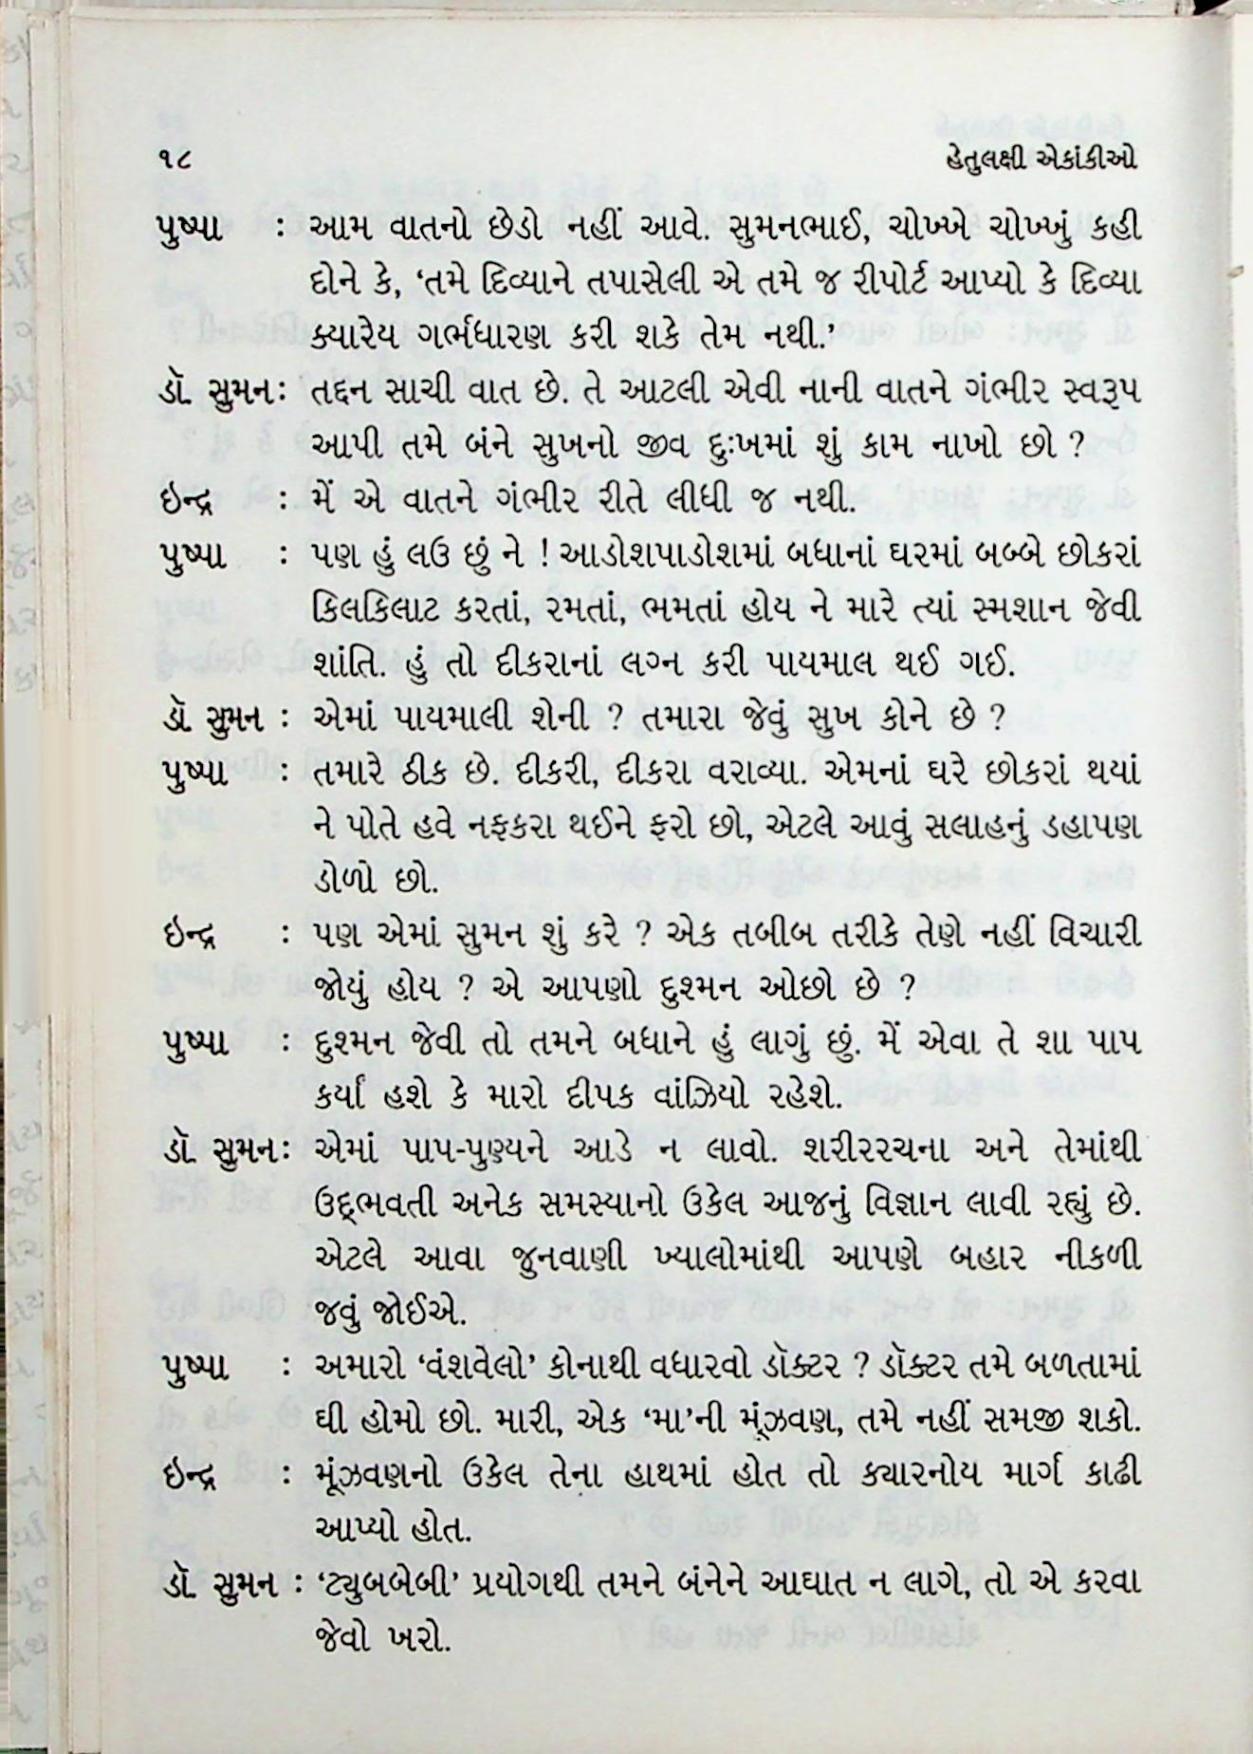 ૧૮ હેતુલક્ષી એકાંકીઓ
પુષ્પા : આમ વાતનો છેડો નહીં આવે. સુમનભાઈ, ચોખ્ખે ચોખ્ખું કહી
દોને કે, ‘તમે દિવ્યાને તપાસેલી એ તમે જ રીપોર્ટ આપ્યો કે દિવ્યા
ક્યારેય ગર્ભધારણ કરી શકે તેમ નથી.’
ડૉ. સુમન : તદ્દન સાચી વાત છે. તે આટલી એવી નાની વાતને ગંભીર સ્વરૂપ
આપી તમે બંને સુખનો જીવ દુઃખમાં શું કામ નાખો છો ?
ઇન્દ્ર : મેં એ વાતને ગંભીર રીતે લીધી જ નથી.
પુષ્પા : પણ હું લઉ છું ને ! આડોશપાડોશમાં બધાનાં ઘરમાં બબ્બે છોકરાં
કિલકિલાટ કરતાં, રમતાં, ભમતાં હોય ને મારે ત્યાં સ્મશાન જેવી
શાંતિ. હું તો દીકરાનાં લગ્ન કરી પાયમાલ થઈ ગઈ.
ડૉ. સુમન : એમાં પાયમાલી શેની ? તમારા જેવું સુખ કોને છે ?
પુષ્પા : તમારે ઠીક છે. દીકરી, દીકરા વરાવ્યા. એમનાં ઘરે છોકરાં થયાં
ને પોતે હવે નફકરા થઈને ફરો છો, એટલે આવું સલાહનું ડહાપણ
ડોળો છો.
ઇન્દ્ર : પણ એમાં સુમન શું કરે ? એક તબીબ તરીકે તેણે નહીં વિચારી
જોયું હોય ? એ આપણો દુશ્મન ઓછો છે ?
પુષ્પા : દુશ્મન જેવી તો તમને બધાને હું લાગું છું. મેં એવા તે શા પાપ
કર્યાં હશે કે મારો દીપક વાંઝિયો રહેશે.
ડૉ. સુમન : એમાં પાપ-પુણ્યને આડે ન લાવો. શરીરરચના અને તેમાંથી
ઉદ્ભવતી અનેક સમસ્યાનો ઉકેલ આજનું વિજ્ઞાન લાવી રહ્યું છે.
એટલે આવા જુનવાણી ખ્યાલોમાંથી આપણે બહાર નીકળી
જવું જોઈએ.
પુષ્પા : અમારો ‘વંશવેલો’ કોનાથી વધારવો ડૉક્ટર ? ડૉક્ટર તમે બળતામાં
ઘી હોમો છો. મારી, એક ‘મા’ની મૂંઝવણ, તમે નહીં સમજી શકો.
ઇન્દ્ર : મૂંઝવણનો ઉકેલ તેના હાથમાં હોત તો ક્યારનોય માર્ગ કાઢી
આપ્યો હોત.
ડૉ. સુમન : ‘ટ્યુબબેબી’ પ્રયોગથી તમને બંનેને આઘાત ન લાગે, તો એ કરવા
જેવો ખરો.